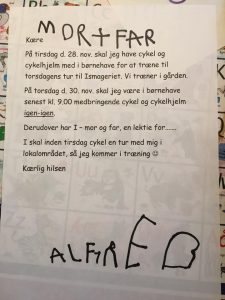 Kære MOR+FAR
På tirsdag d. 28. nov. skal jeg have cykel og
cykelhjelm med i børnehave for at træne til
torsdagens tur til Ismageriet. Vi træner i gården.
På torsdag d. 30. nov. skal jeg være i børnehave
senest kl. 9.00 medbringende cykel og cykelhjelm
igen-igen.
Derudover har I – mor og far, en lektie for.......
I skal inden tirsdag cykel en tur med mig i
lokalområdet, så jeg kommer i træning ☺
Kærlig hilsen
ALFRED